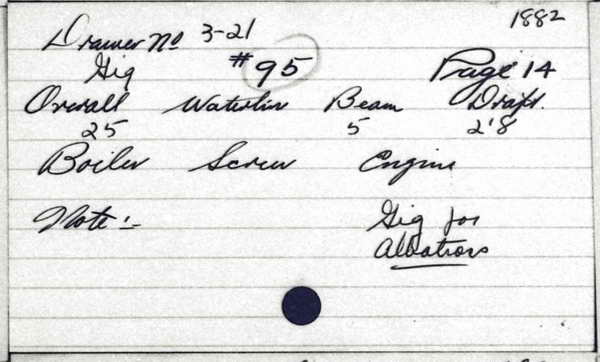 1882
Drawer No 3-21
Gig #95 Page 14
Overall Waterlin Beam Draft.
25 5 2'8
Boiler Screw Engine
Note:- Gig for
Albatross